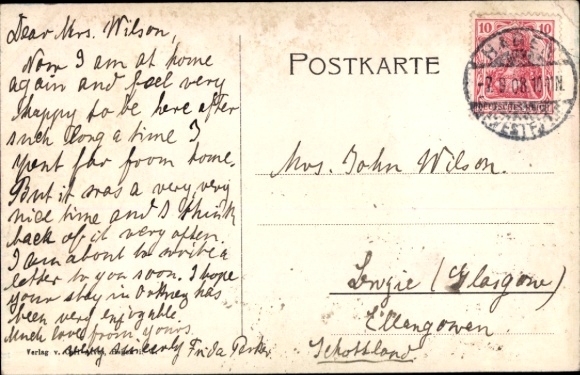 Dear Mrs. Wilson,
Now I am at home
again and feel very
happy to be here after
such long a time I
spent far from home.
But it was a very, very
nice time and I think
back of it very often.
I am about to write a
letter to you soon. I hope
your stay in Orkney has
been very enjoyable.
Much love from yours
very sincerely Frida
Verlag v.
POSTKARTE
10 10
DEUTSCHES REICH
HALLE
9.08.10-11V.
(WESTF.)
Mrs. John Wilson.
Lenzie (Glasgow)
Ellangowen
Schottland